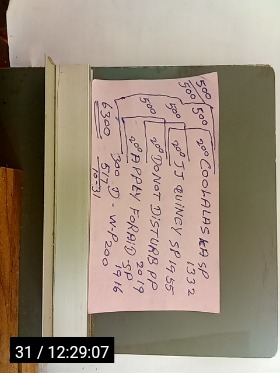 500
500
500 20° COOLALASKA SP 1332
500 20° JJ QUINCY SP 1955
500 20° DO NOT DISTURB PP 2019
20° APPLY FORAID SP 1916
300 D - W-P 200
6300
517
10-31
31 / 12:29:07